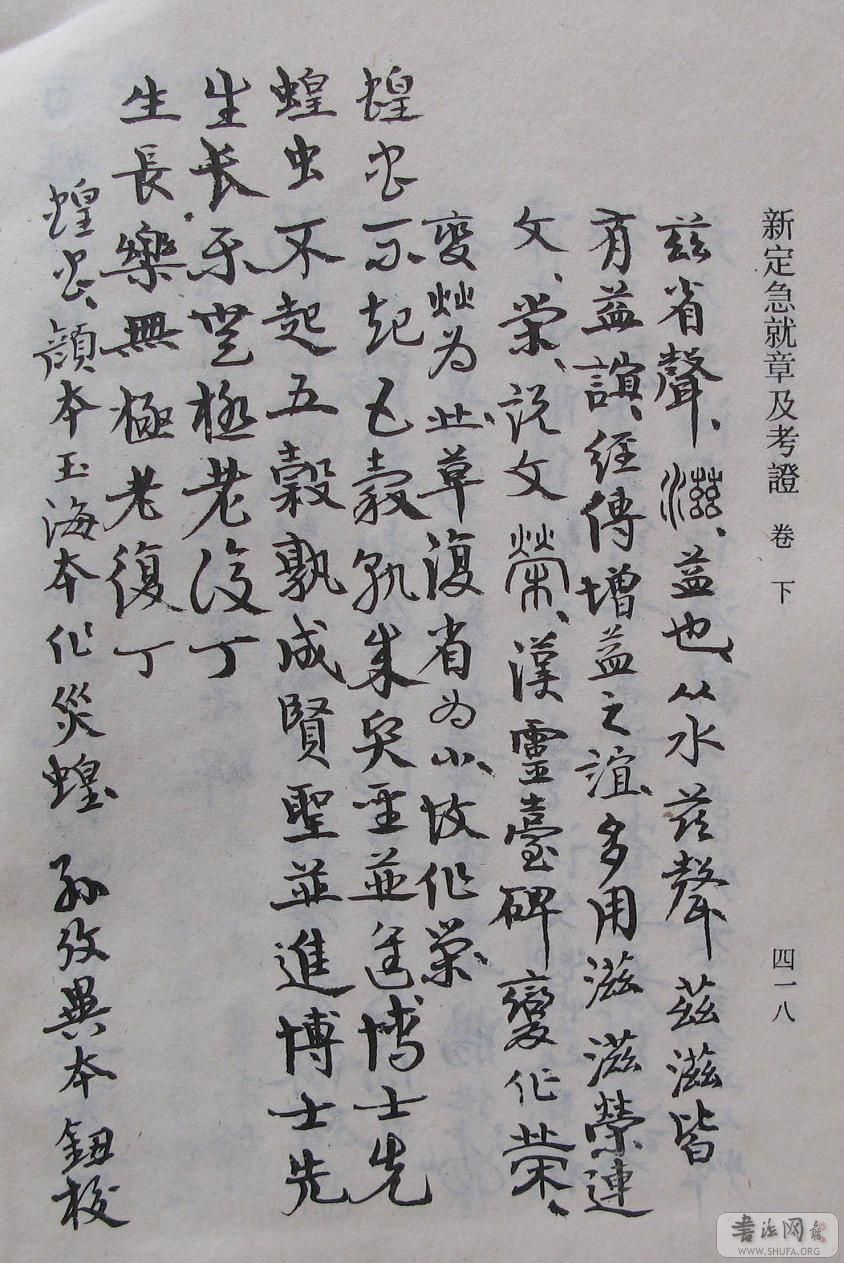 新定急就章及考證 卷下
四一八
兹省聲、滋、益也、从水兹聲兹滋皆
有益誼、經傳增益之誼、多用滋滋榮連
文、榮、説文榮、漢靈臺碑變作荣、
變炏为䒑、草復省为小、故作荣、
蝗虫不起五穀孰成賢聖並進博士先
蝗虫不起五穀孰成賢聖並進博士先
生長乐無極老復丁
生長樂無極老復丁
蝗虫、顔本玉海本作災蝗、孙攷異本鈕校
書法网
WWW.SHUFA.ORG